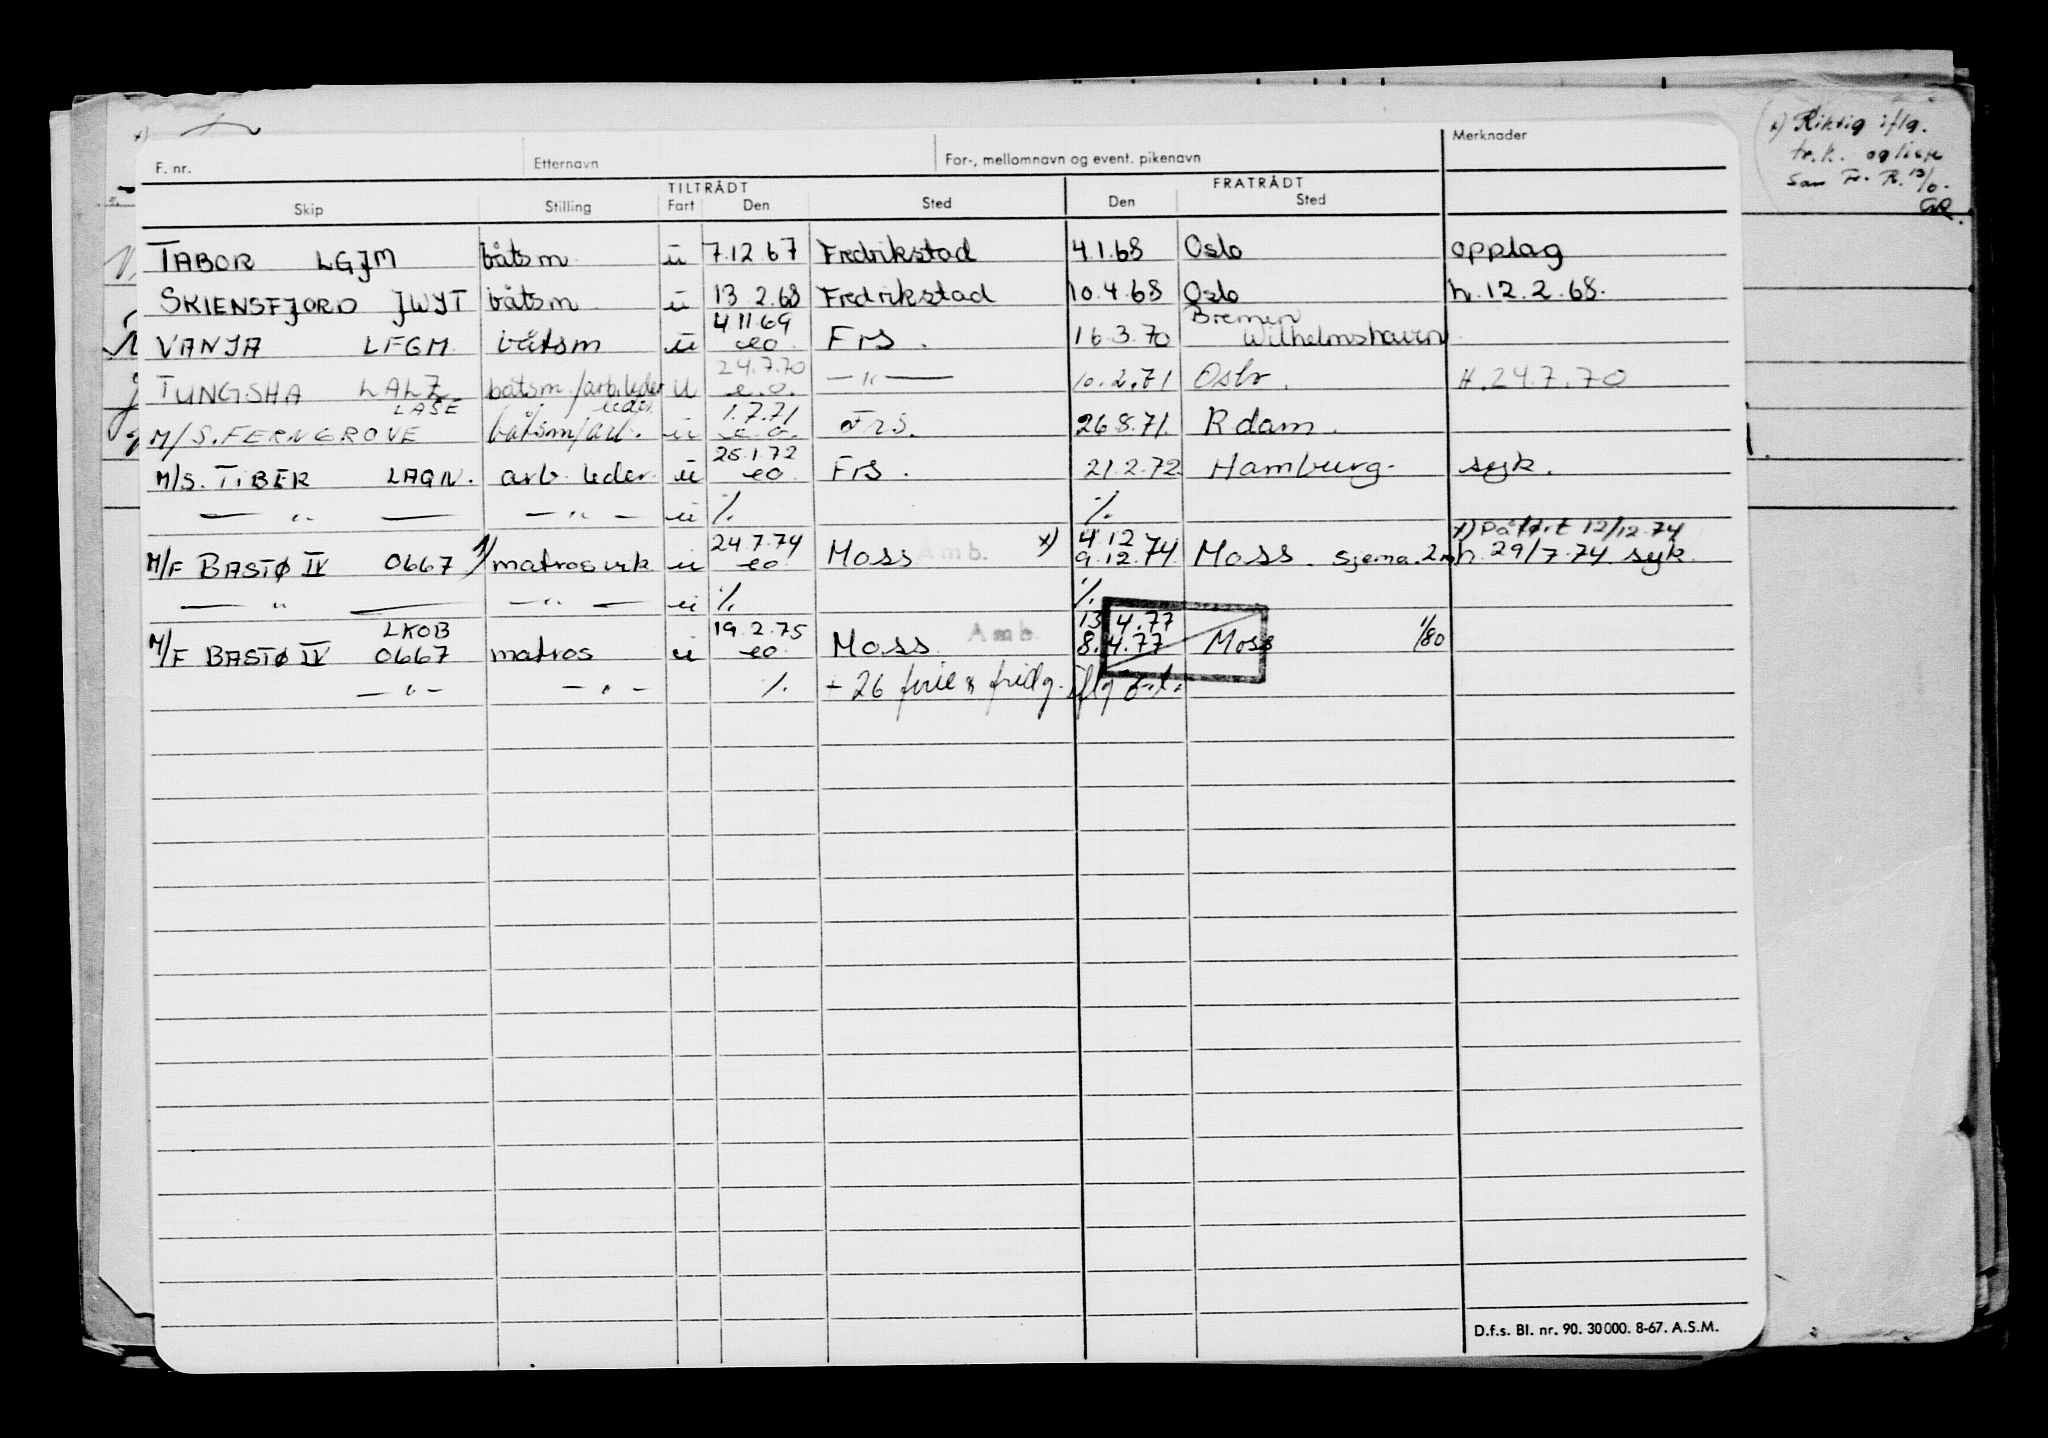 x) Riktig iflg.
tr.k. og liste
GR.
F. nr. Etternavn For-, mellomnavn og event. pikenavn Merknader
TILTRÅDT FRATRÅDT
Skip Stilling Fart Den Sted Den Sted
TABOR LGJM båtsm ü 7.12.67 Fredrikstad 4.1.68 Oslo opplag
SKIENSFJORD JWYT båtsm ü 13.2.68 Fredrikstad 10.4.68 Oslo h.12.2.68.
4.11.69 Bremen
VANJA LFGM båtsm ü eo. Frs. 16.3.70 Wilhelmshavn
24.7.70
TUNGSHA LALZ båtsm./arb.leder ü e.o. — " — 10.2.71 Oslo. H.24.7.70
LASE leder 1.7.71
M/S. FERNGROVE båtsm/arb. ü e.o. Frs. 26.8.71. Rdam.
25.1.72
M/S. TIBER LAGN. arb. leder ü eo. Frs. 21.2.72. Hamburg. syk.
— " — — " — ü ./. ./.
24.7.74 4.12 x) Påført 12/12.74
M/F BASTØ IV 0667 x) matrosvik ü eo. Moss Amb. x) 9.12.74. Moss. Sjema. 2 h. 29/7.74. syk.
— " — — " — ü ./. ./.
LKOB 19.2.75 13.4.77
M/F BASTØ IV 0667 matros ü eo. Moss Amb. 8.4.77 Moss 1/80
— " — — " — ./. + 26 ferie & fridg. iflg
D.f.s. Bl. nr. 90. 30000. 8-67. A.S.M.